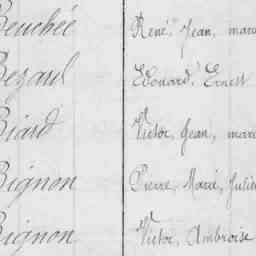 Beuchée René, Jean, mar
Bezard Edouard, Ernest
Biard Victor, Jean, mar
Bignon Pierre, Marie, Juli
Bignon Victor, Ambroise